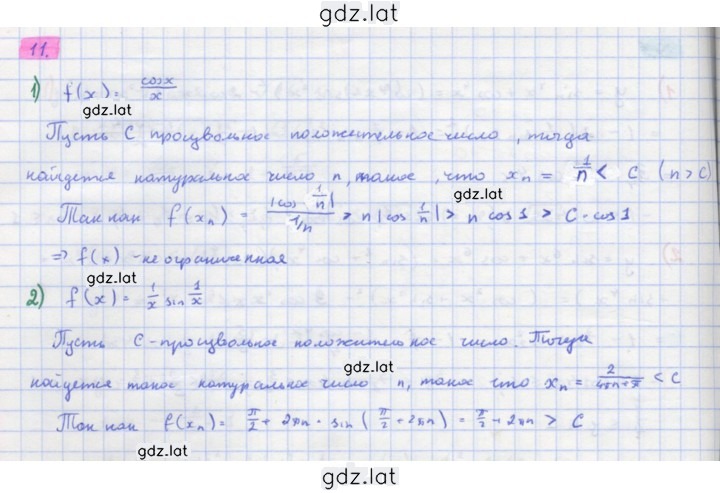 gdz.lat
11.
1) f(x) = cosx/x
gdz.lat
Пусть C произвольное положительное число, тогда
найдется натуральное число n, такое, что xn = 1/n < C (n > C)
gdz.lat
Так как f(xn) = |cos 1/n| / 1/n > n|cos 1/n| > n cos 1 > C - cos 1
⇒ f(x) - не ограниченная
gdz.lat
2) f(x) = 1/x sin 1/x
Пусть C - произвольное положительное число. Тогда
gdz.lat
найдется такое натуральное число n, такое что xn = 2/(4πn+π) < C
Так как f(xn) = π/2 + 2πn · sin (π/2 + 2πn) = π/2 + 2πn > C
gdz.lat
gdz.lat